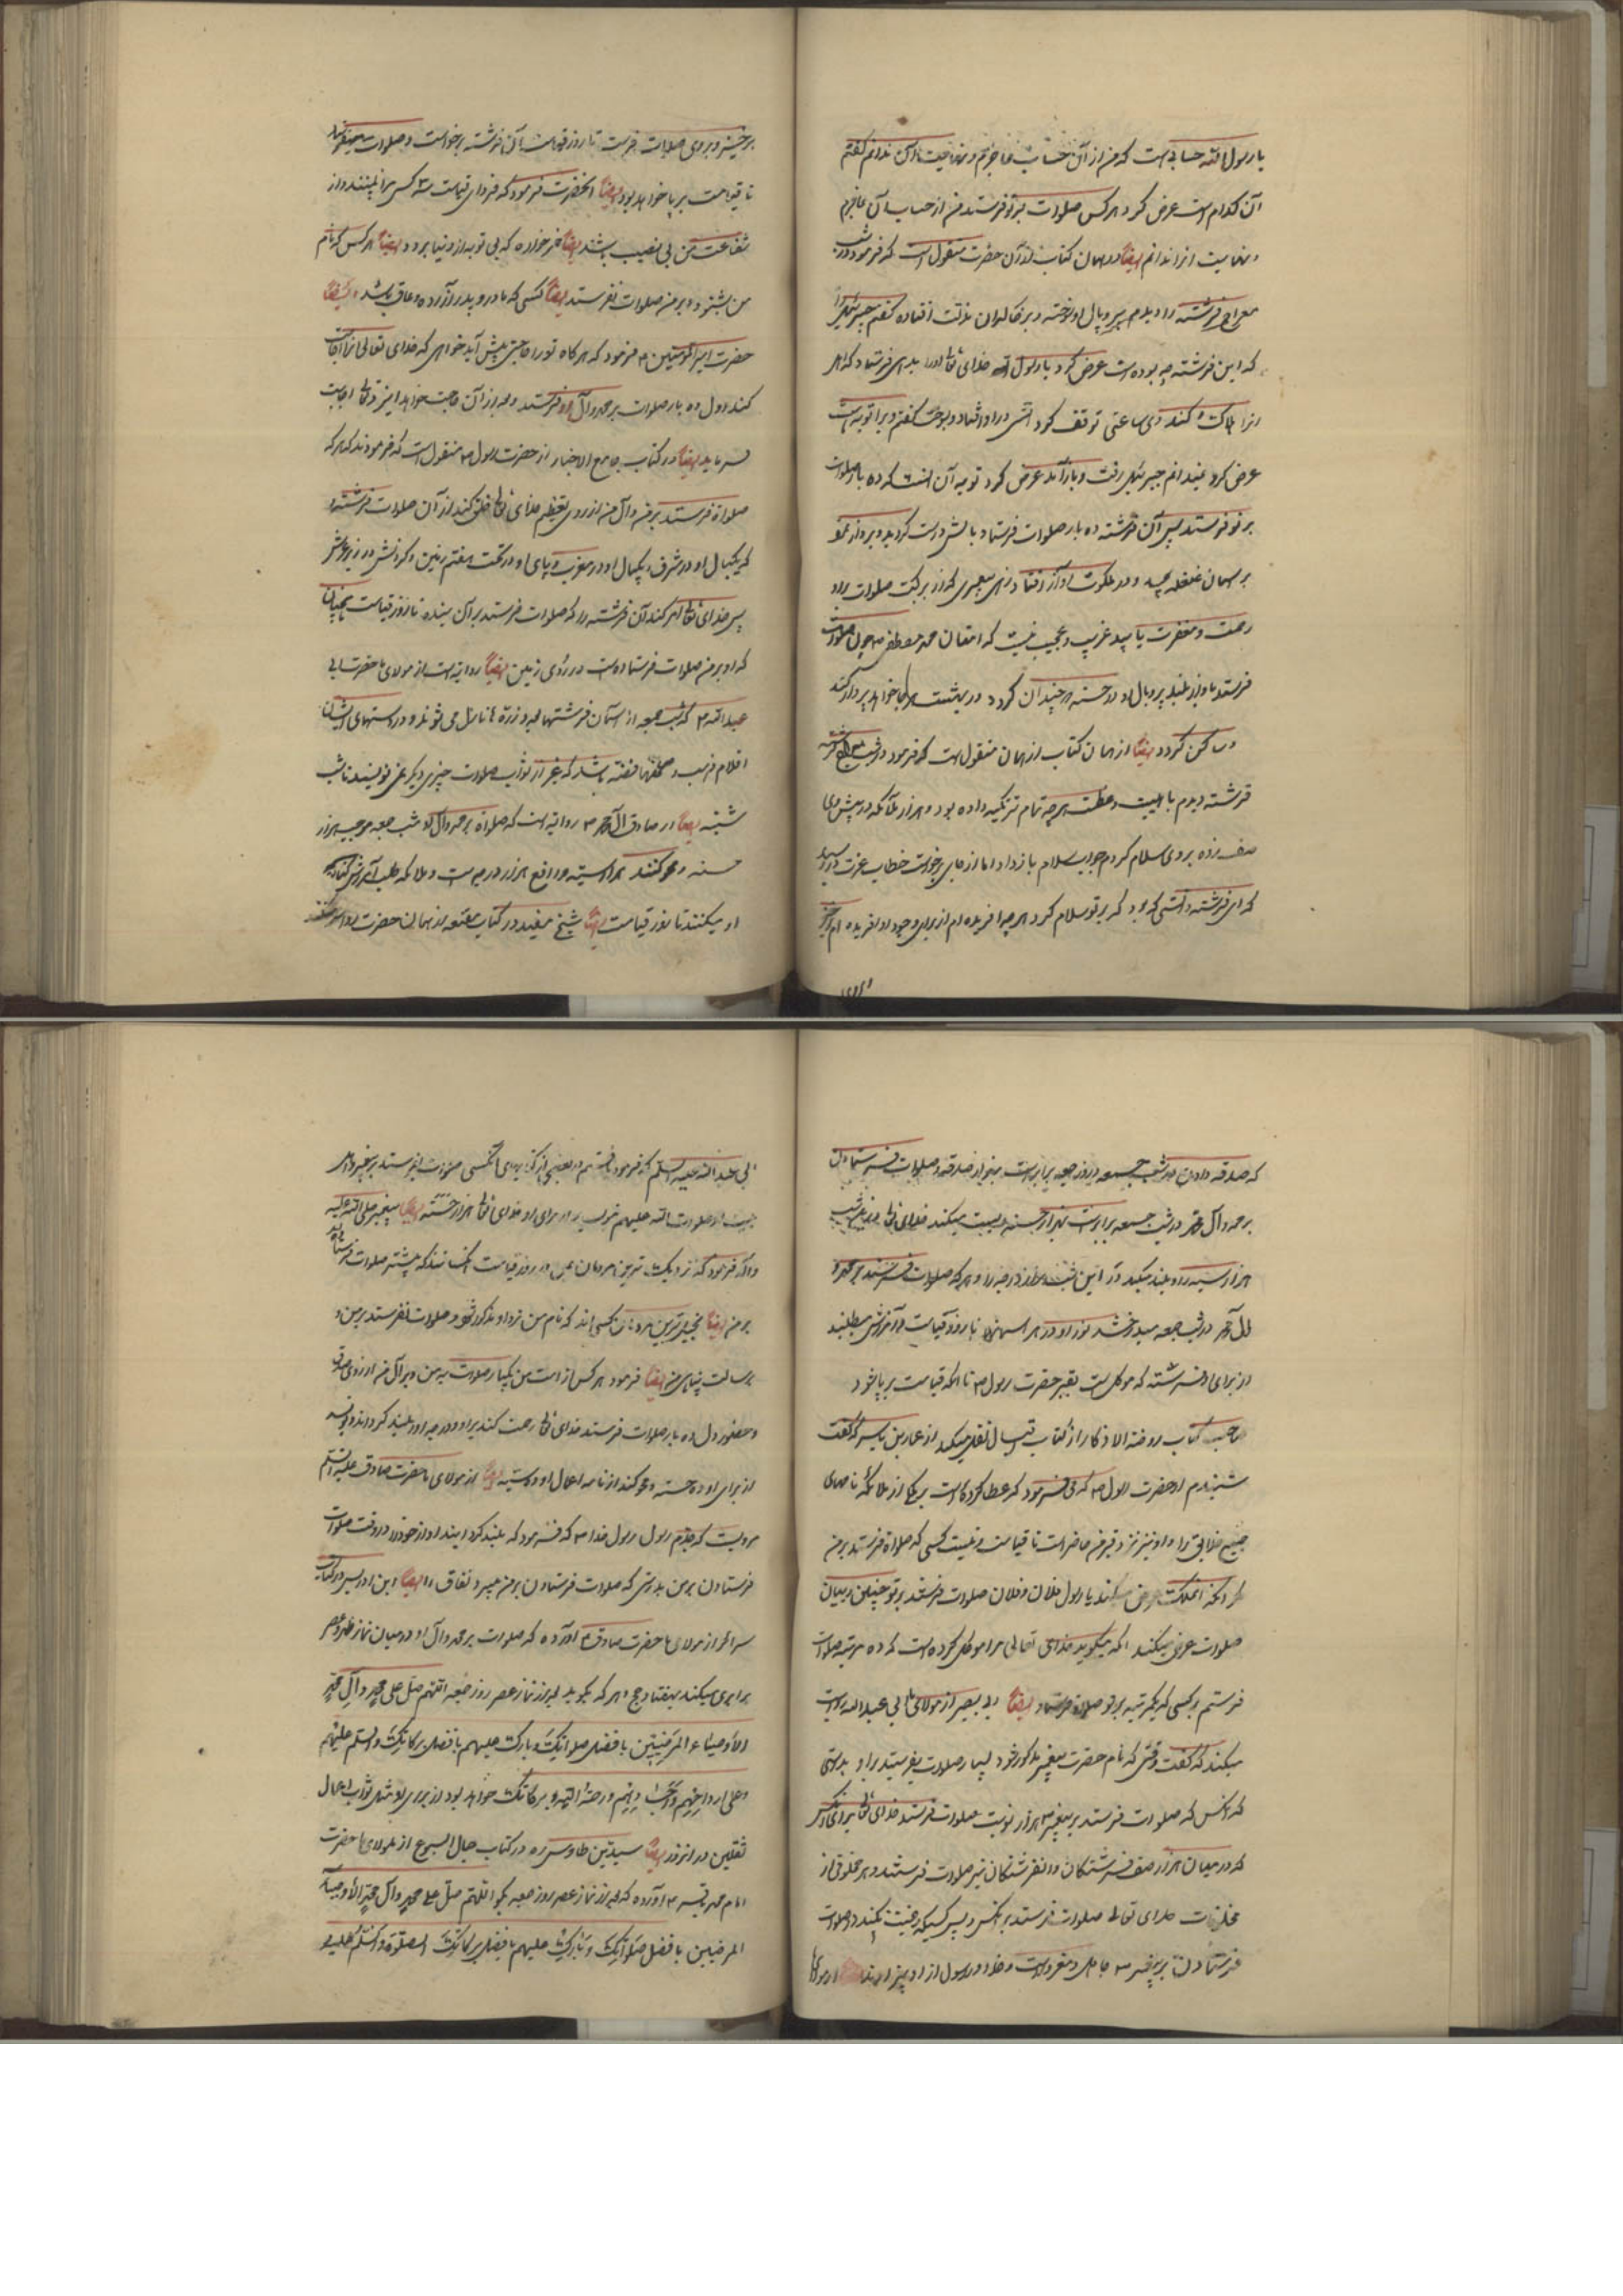 یا رسول الله حسابی است که من از آن حساب عاجزم و نهایت آن ندانم گفتم
آن کدام است عرض کرد هر کس صلوات بر تو فرستد من از حساب آن عاجزم
و نهایت انرا ندانم ایضا در همان کتاب از آن حضرت منقول است که فرمود در شب
معراج فرشته را دیدم پر و بال او سوخته و بر خاک افتاده گفتم جبرئیل را
که این فرشته چه بوده است عرض کرد یا رسول الله خدای تعالی او را بدی فرستاد که اهل
انرا هلاک کند وی ساعتی توقف کرد آتش در او افتاد و بسوخت گفتم ویرا توبه است
عرض کرد نمیدانم جبرئیل رفت و باز آمد عرض کرد توبه آن است که ده بار صلوات
بر تو فرستد پس آن فرشته ده بار صلوات فرستاد بالش درست گردید و پرواز نمود
بر آسمان غلغله و در ملکوت آواز افتاد زهی پیغمبری که از برکت صلوات برو
رحمت و مغفرت یابند غریب و عجیب نیست که امتان محمد مصطفی ص چون صلوات
فرستد باو از بلند پر و بال او در حسنه در چندان گردد در بهشت هر جا خواهد پرواز کند
و ساکن گردد ایضا از همان کتاب از همان منقول است که فرمود در شب معراج گذشته
فرشته دیدم با هیبت و عظمت هر چه تمام تر تکیه داده بود و هزار ملائکه در پیش وی
صف زده بر وی سلام کردم جواب سلام باز داد اما از جای برنخواست خطاب عزت در رسید
که ای فرشته دانستی که بود که بر تو سلام کرد هر چه آفریده ام از برای وجود او آفریده ام برخیز
برخیز و بر وی صلوات فرست تا روز قیامت آن فرشته برخواست و صلوات میفرستد
تا قیامت بر پا خواهد بود ایضا انحضرت فرمود که فردای قیامت سه کس مرا نبینند و از
شفاعت من بی نصیب باشند ایضا خمر خواره که بی توبه از دنیا برود و ایضا هر کس که نام
من بشنود و بر من صلوات نفرستد ایضا کسی که مادر و پدر آزرده و عاق باشد و ایضا
حضرت امیر المؤمنین ع فرمود که هر گاه تو را حاجتی پیش آید خواهی که خدای تعالی انرا اجابت
کند اول ده بار صلوات بر محمد و آل او فرستد و بعد از آن حاجت خواهد ایزد تعالی اجابت
فرماید ایضا در کتاب جامع الاخبار از حضرت رسول ص منقول است که فرمودند که هر که
صلواة فرستد بر من و آل من از روی تعظیم خدای تعالی خلق کند از آن صلوات فرشته
که یکبال او در مشرق و یکبال او در مغرب و پای او در تحت هفتم زمین و گردنش در زیر عرش
پس خدای تعالی امر کند آن فرشته را که صلوات فرستد بر آن بنده تا روز قیامت چنانکه
که او بر من صلوات فرستاده است در روی زمین ایضا روایت است از مولای ما حضرت ابی
عبد الله ع که شب جمعه از آسمان فرشتها بعدد ذره ها نازل می شوند و در دستهای ایشان
اقلام ذهب و صحیفها فضه باشد که غیر از ثواب صلوات چیزی دیگر نمی نویسند تا شب
شنبه ایضا از صادق آل محمد ع روایت است که صلواة بر محمد و آل او شب جمعه موجب هزار
حسنه و محو کنند هزار سیئه و رافع هزار درجه است و ملائکه طلب آمرزش گناه
او میکنند تا روز قیامت ایضا شیخ مفید در کتاب مقنعه از همان حضرت روایت
که صدقه دادن در شب جمعه و روز جمعه برابر است بهزار صدقه و صلوات فرستادن
بر محمد و آل محمد در شب جمعه برابر است بهزار حسنه و پست میکند خدای تعالی در این شب
هزار سیئه را و بلند میکند در این شب هزار درجه را و هر که صلوات فرستد بر محمد و
آل محمد در شب جمعه میدرخشد نور او در هر آسمانها تا روز قیامت و آمرزش میطلبند
از برای او فرشته که موکل است بقبر حضرت رسول ص تا انکه قیامت بر پا شود
صاحب کتاب روضة الاذکار از کتاب نقل میکند از عمار بن یاسر که گفت
شنیدم از حضرت رسول ص که می فرمود که عطا کرده است یکی از ملائکه نامهای
جمیع خلایق را و او نیز نزد قبر من حاضر است تا قیامت و نیست کسی که صلواة فرستد بر من
مگر آنکه آن ملک عرض میکند یا رسول فلان و فلان صلوات فرستند بر تو چنین و بیان
صلوات عرض میکند انکه میگوید خدای تعالی مرا موکل کرده است که ده مرتبه صلوات
فرستم بر کسی که یکمرتبه بر تو صلوات فرستاد ایضا ابی بصیر از مولای ما ابی عبد الله روایت
میکند که گفت وقتی که نام حضرت پیغمبر مذکور شود بسیار صلوات بفرستید بر او بدرستی
که هر کس که صلوات فرستد بر پیغمبر ص هزار نوبت صلوات فرستد خدای تعالی بر آن کس
که در میان هزار صف فرشتگان و انفرشتگان نیز صلوات فرستند و هر مخلوقی از
مخلوقات خدای تعالی صلوات فرستد بر انکس و پس کسیکه رغبت نکند در صلوات
فرستادن بر پیغمبر ص جاهل و مغرور است و خدا و رسول از او بیزارند از مولای ما
ابی عبد الله علیه السلم که فرمود یافتم در بعضی از کتابهای کسی صلوات فرستد بر پیغمبر و اهل
بیت او صلوات الله علیهم ثواب بر او برای او خدای تعالی هزار حسنه ایضا پیغمبر صلی الله علیه
و آله فرمود که نزدیک ترین مردمان بمن در روز قیامت کسانند که بیشتر صلوات فرستاده
بر من ایضا بخیل ترین مردمان کسی اند که نام من نزد او مذکور شود و صلوات نفرستد بر من و
برسالت پناهی من ایضا فرمود هر کس از امت من یکبار صلوات بر من و بر آل من از روی صدق
و حضور دل ده بار صلوات فرستد خدای تعالی رحمت کند بر او و درجه او را بلند گرداند و بنویسد
از برای او ده حسنه و محو کند از نامه اعمال او ده سیئه ایضا از مولای ما حضرت صادق علیه السلم
مرویست که جدم رسول خدا ص که فرمود که بلند گردانید آواز خود را در وقت صلوات
فرستادن بر من بدرستی که صلوات فرستادن بر من میبرد نفاق را ایضا ابن ادریس در کتاب
سرائر از مولای ما حضرت صادق ع آورده که صلوات بر محمد و آل او در میان نماز ظهر و عصر
برابری میکند بهفتاد حج و هر که بگوید بعد از نماز عصر روز جمعه اللهم صل علی محمد و آل محمد
الاوصیاء المرضیین بافضل صلواتک و بارک علیهم بافضل برکاتک و السلم علیهم
و علی ارواحهم و اجسادهم و رحمة الله و برکاتک خواهد بود از برای او مثل ثواب اعمال
ثقلین در انروز ایضا سید بن طاوس ره در کتاب جمال الاسبوع از مولای ما حضرت
امام محمد باقر ع آورده که بعد از نماز عصر روز جمعه بگو اللهم صل علی محمد و آل محمد الاوصیاء
المرضیین بافضل صلواتک و بارک علیهم بافضل برکاتک الصلوة و السلم علیه